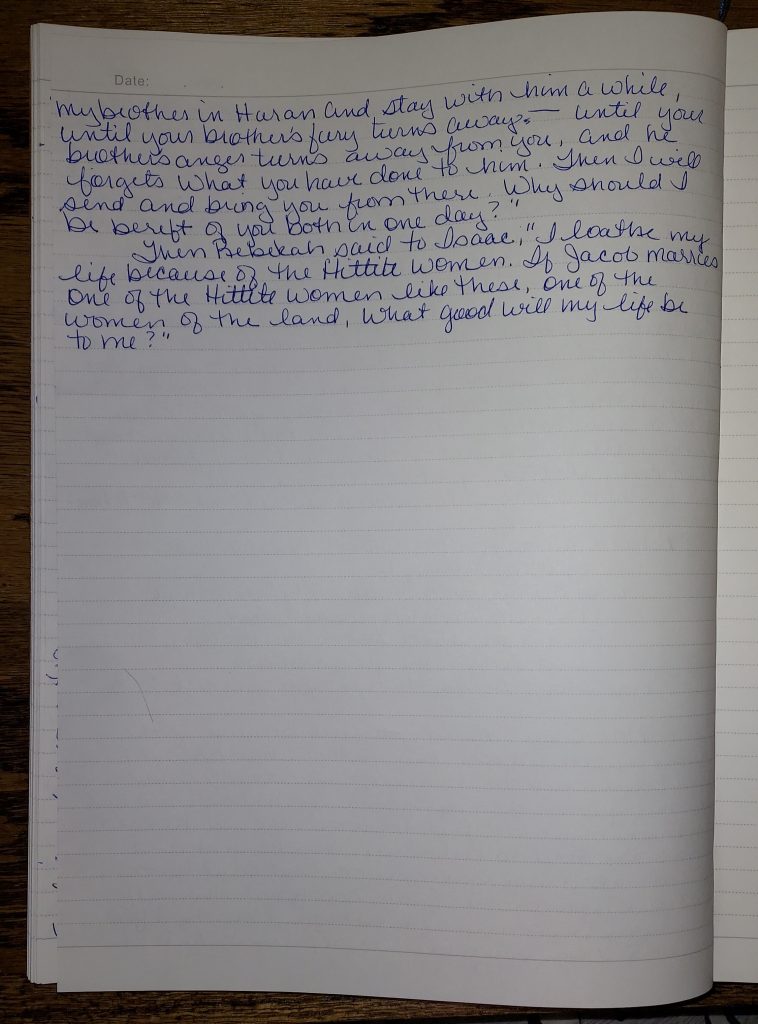 Date:
my brother in Haran and stay with him a while,
until your brother's fury turns away — until your
brother's anger turns away from you, and he
forgets what you have done to him. Then I will
send and bring you from there. Why should I
be bereft of you both in one day?"
Then Rebekah said to Isaac, "I loathe my
life because of the Hittite women. If Jacob marries
one of the Hittite women like these, one of the
women of the land, what good will my life be
to me?"